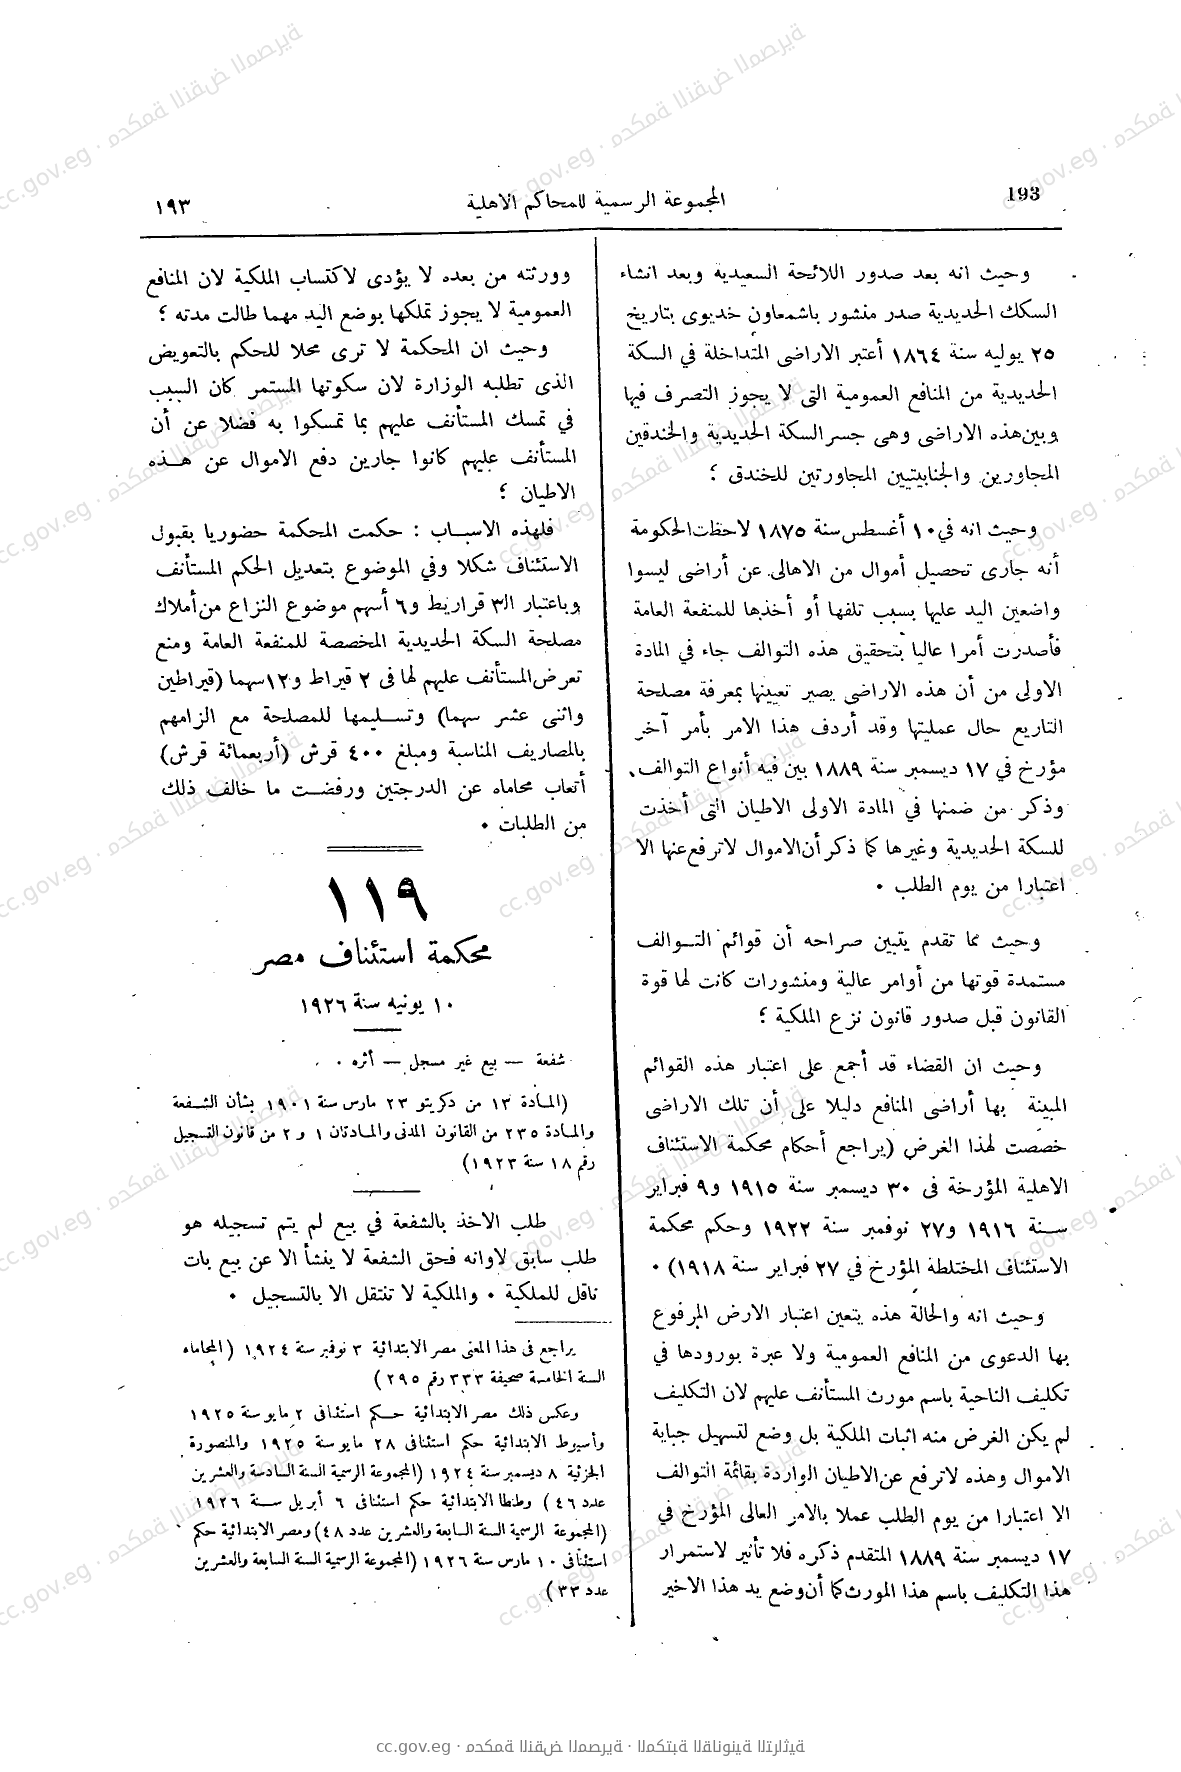 193
المجموعة الرسمية للمحاكم الاهلية
١٩٣
وحيث انه بعد صدور اللائحة السعيدية وبعد انشاء
السكك الحديدية صدر منشور باشمعاون خديوى بتاريخ
٢٥ يوليه سنة ١٨٦٤ أعتبر الاراضى المتداخلة في السكة
الحديدية من المنافع العمومية التى لا يجوز التصرف فيها
وبين هذه الاراضى وهى جسر السكة الحديدية والخندقين
المجاورين والجنابيتين المجاورتين للخندق ؛
وحيث انه في ١٠ أغسطس سنة ١٨٧٥ لاحظت الحكومة
أنه جارى تحصيل أموال من الاهالى عن أراضى ليسوا
واضعين اليد عليها بسبب تلفها أو أخذها للمنفعة العامة
فأصدرت أمرا عاليا بتحقيق هذه التوالف جاء في المادة
الاولى من أن هذه الاراضى يصير تعيينها بمعرفة مصلحة
التاريع حال عمليتها وقد أردف هذا الامر بأمر آخر
مؤرخ في ١٧ ديسمبر سنة ١٨٨٩ بين فيه أنواع التوالف
وذكر من ضمنها في المادة الاولى الاطيان التى أخذت
للسكة الحديدية وغيرها كما ذكر أن الاموال لا ترفع عنها الا
اعتبارا من يوم الطلب ٠
وحيث مما تقدم يتبين صراحه أن قوائم التوالف
مستمدة قوتها من أوامر عالية ومنشورات كانت لها قوة
القانون قبل صدور قانون نزع الملكية ؛
وحيث ان القضاء قد أجمع على اعتبار هذه القوائم
المبينة بها أراضى المنافع دليلا على أن تلك الاراضى
خصصت لهذا الغرض (يراجع أحكام محكمة الاستئناف
الاهلية المؤرخة فى ٣٠ ديسمبر سنة ١٩١٥ و٩ فبراير
سنة ١٩١٦ و٢٧ نوفمبر سنة ١٩٢٢ وحكم محكمة
الاستئناف المختلطة المؤرخ في ٢٧ فبراير سنة ١٩١٨) ٠
وحيث انه والحالة هذه يتعين اعتبار الارض المرفوع
بها الدعوى من المنافع العمومية ولا عبرة بورودها في
تكليف الناحية باسم مورث المستأنف عليهم لان التكليف
لم يكن الغرض منه اثبات الملكية بل وضع لتسهيل جباية
الاموال وهذه لاترفع عن الاطيان الواردة بقائمة التوالف
الا اعتبارا من يوم الطلب عملا بالامر العالى المؤرخ في
١٧ ديسمبر سنة ١٨٨٩ المتقدم ذكره فلا تأثير لاستمرار
هذا التكليف باسم هذا المورث كما أن وضع يد هذا الاخير
وورثته من بعده لا يؤدى لاكتساب الملكية لان المنافع
العمومية لا يجوز تملكها بوضع اليد مهما طالت مدته ؛
وحيث ان المحكمة لا ترى محلا للحكم بالتعويض
الذى تطلبه الوزارة لان سكوتها المستمر كان السبب
في تمسك المستأنف عليهم بما تمسكوا به فضلا عن أن
المستأنف عليهم كانوا جارين دفع الاموال عن هذه
الاطيان ؛
فلهذه الاسباب : حكمت المحكمة حضوريا بقبول
الاستئناف شكلا وفي الموضوع بتعديل الحكم المستأنف
وباعتبار الـ٣ قراريط و٦ أسهم موضوع النزاع من أملاك
مصلحة السكة الحديدية المخصصة للمنفعة العامة ومنع
تعرض المستأنف عليهم لها فى ٢ قيراط و١٢سهما (قيراطين
واثنى عشر سهما) وتسليمها للمصلحة مع الزامهم
بالمصاريف المناسبة ومبلغ ٤٠٠ قرش (أربعمائة قرش)
أتعاب محاماه عن الدرجتين ورفضت ما خالف ذلك
من الطلبات ٠
١١٩
محكمة استئناف مصر
١٠ يونيه سنة ١٩٢٦
شفعة — بيع غير مسجل — أثره ٠
(المادة ١٣ من دكريتو ٢٣ مارس سنة ١٩٠١ بشأن الشفعة
والمادة ٢٣٥ من القانون المدنى والمادتان ١ و٢ من قانون التسجيل
رقم ١٨ سنة ١٩٢٣)
طلب الاخذ بالشفعة في بيع لم يتم تسجيله هو
طلب سابق لاوانه فحق الشفعة لا ينشأ الا عن بيع بات
ناقل للملكية ٠ والملكية لا تنتقل الا بالتسجيل ٠
يراجع فى هذا المعنى مصر الابتدائية ٣ نوفمبر سنة ١٩٢٤ (المحاماه
السنة الخامسة صحيفة ٣٣٣ رقم ٢٩٥)
وعكس ذلك مصر الابتدائية حكم استئنافى ٢ مايو سنة ١٩٢٥
وأسيوط الابتدائية حكم استئنافى ٢٨ مايو سنة ١٩٢٥ والمنصورة
الجزئية ٨ ديسمبر سنة ١٩٢٤ (المجموعة الرسمية السنة السادسة والعشرين
عدد ٤٦) وطنطا الابتدائية حكم استئنافى ٦ أبريل سنة ١٩٢٦
(المجموعة الرسمية السنة السابعة والعشرين عدد ٤٨) ومصر الابتدائية حكم
استئنافى ١٠ مارس سنة ١٩٢٦ (المجموعة الرسمية السنة السابعة والعشرين
عدد ٣٣)
cc.gov.eg · محكمة النقض المصرية · المكتبة القانونية التراثية